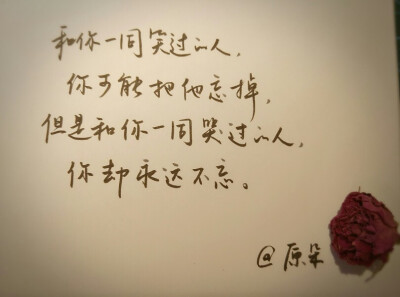 和你一同笑过的人，
你可能把他忘掉，
但是和你一同哭过的人，
你却永远不忘。
@原朵